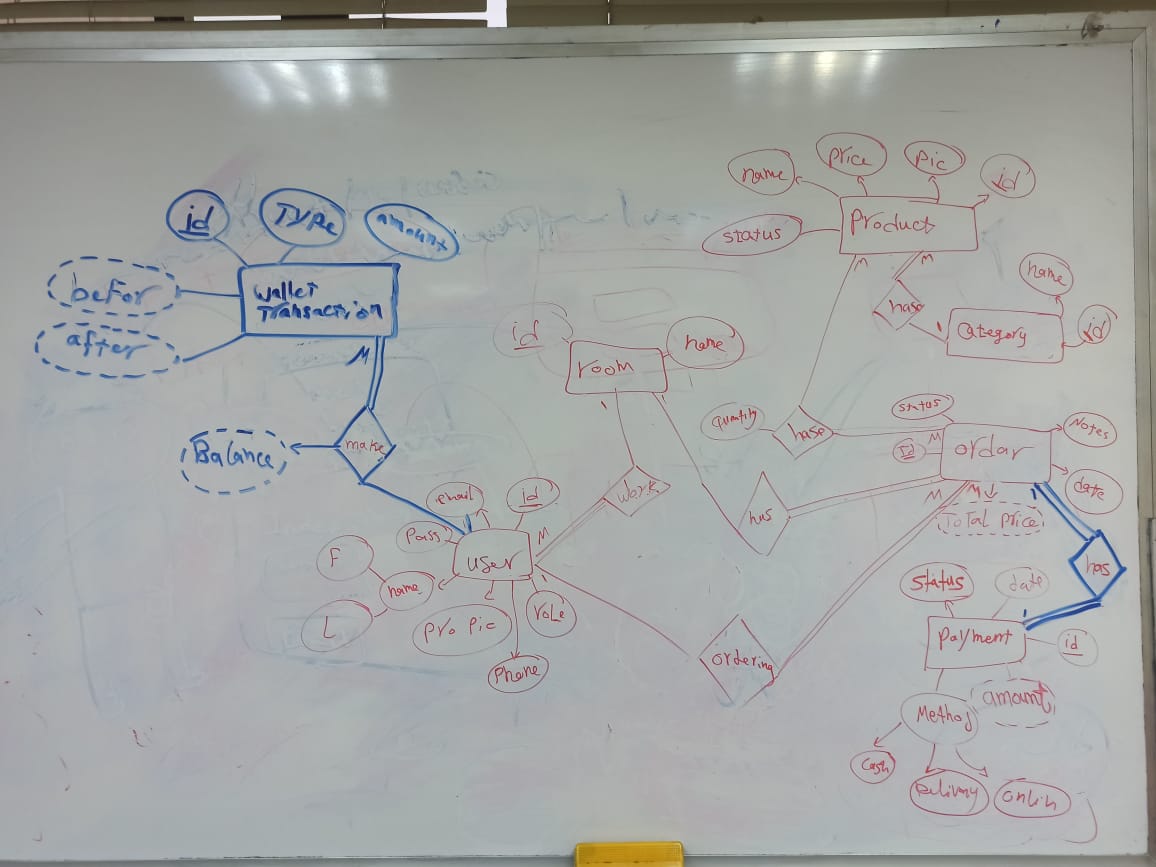 id
TYPe
amount
befor
after
Wallet
Transaction
M
make
Balance
email
id
Pass
user
name
F
L
Pro Pic
Phone
role
M
1
id
name
room
1
1
work
has
ordering
name
Price
Pic
id
status
Product
M
M
hase
1
name
Category
id
Quantity
hase
status
id
M
ordar
Notes
date
M
M
1
ToTal Price
has
status
date
1
Payment
id
amount
Method
Cash
Delivery
onlin